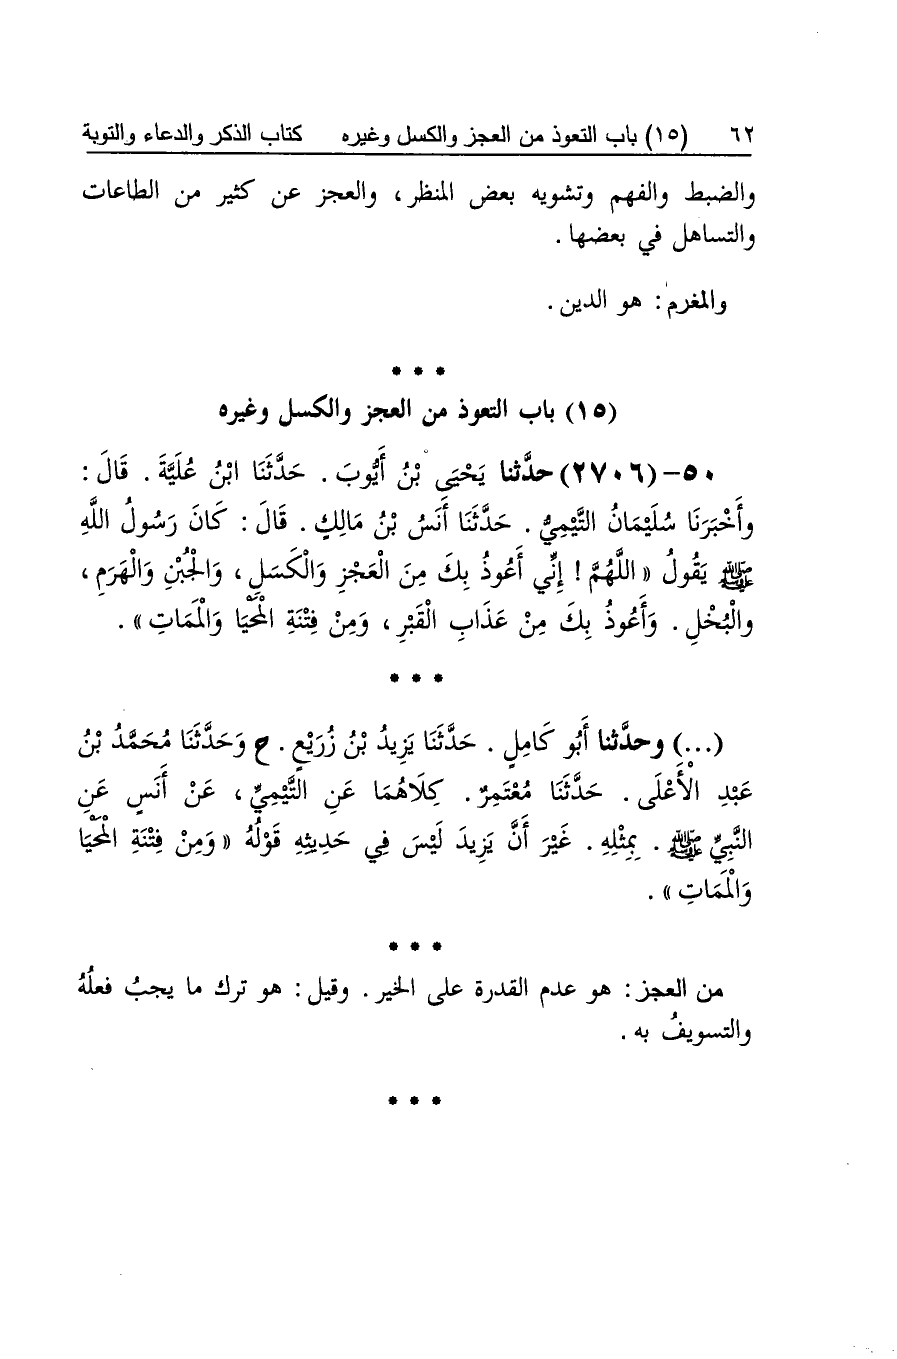 ٦٢ (١٥) باب التعوذ من العجز والكسل وغيره كتاب الذكر والدعاء والتوبة
والضبط والفهم وتشويه بعض المنظر، والعجز عن كثير من الطاعات
والتساهل في بعضها.
والمغرم: هو الدين.
* * *
(١٥) باب التعوذ من العجز والكسل وغيره
٥٠-(٢٧٠٦) حدَّثنا يَحْيَى بْنُ أَيُّوبَ. حَدَّثَنَا ابْنُ عُلَيَّةَ. قَالَ:
وأَخْبَرَنَا سُلَيْمَانُ التَّيْمِيُّ. حَدَّثَنَا أَنَسُ بْنُ مَالِكٍ. قَالَ: كَانَ رَسُولُ اللَّهِ
ﷺ يَقُولُ «اللَّهُمَّ! إِنِّي أَعُوذُ بِكَ مِنَ الْعَجْزِ وَالْكَسَلِ، وَالْجُبْنِ وَالْهَرَمِ،
والْبُخْلِ. وَأَعُوذُ بِكَ مِنْ عَذَابِ الْقَبْرِ، وَمِنْ فِتْنَةِ الْمَحْيَا وَالْمَمَاتِ».
* * *
(...) وحدَّثنا أَبُو كَامِلٍ. حَدَّثَنَا يَزِيدُ بْنُ زُرَيْعٍ. ح وَحَدَّثَنَا مُحَمَّدُ بْنُ
عَبْدِ الْأَعْلَى. حَدَّثَنَا مُعْتَمِرٌ. كِلَاهُمَا عَنِ التَّيْمِيِّ، عَنْ أَنَسٍ عَنِ
النَّبِيِّ ﷺ. بِمِثْلِهِ. غَيْرَ أَنَّ يَزِيدَ لَيْسَ فِي حَدِيثِهِ قَوْلُهُ «وَمِنْ فِتْنَةِ الْمَحْيَا
وَالْمَمَاتِ».
* * *
من العجز: هو عدم القدرة على الخير. وقيل: هو ترك ما يجبُ فعلُهُ
والتسويفُ به.
* * *